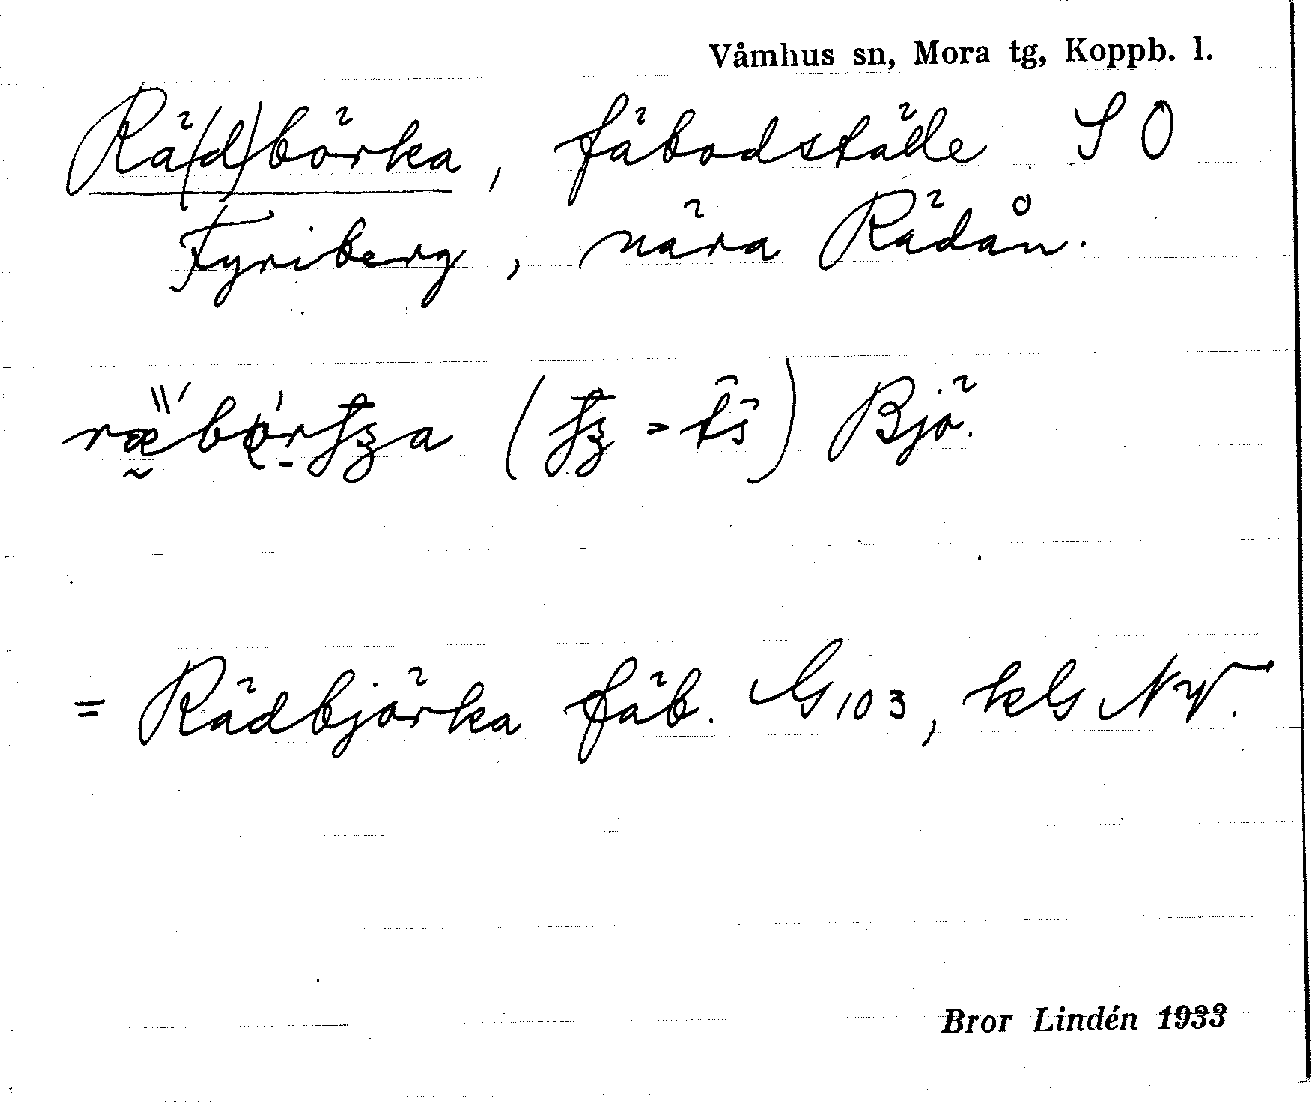 Våmhus sn, Mora tg, Koppb. l.
Rä(d)börka, fäbodställe SO
Fyriberg, nära Rädån.
Bjö.
= Rädbjörka fäb. G103, kls NV.
Bror Lindén 1933